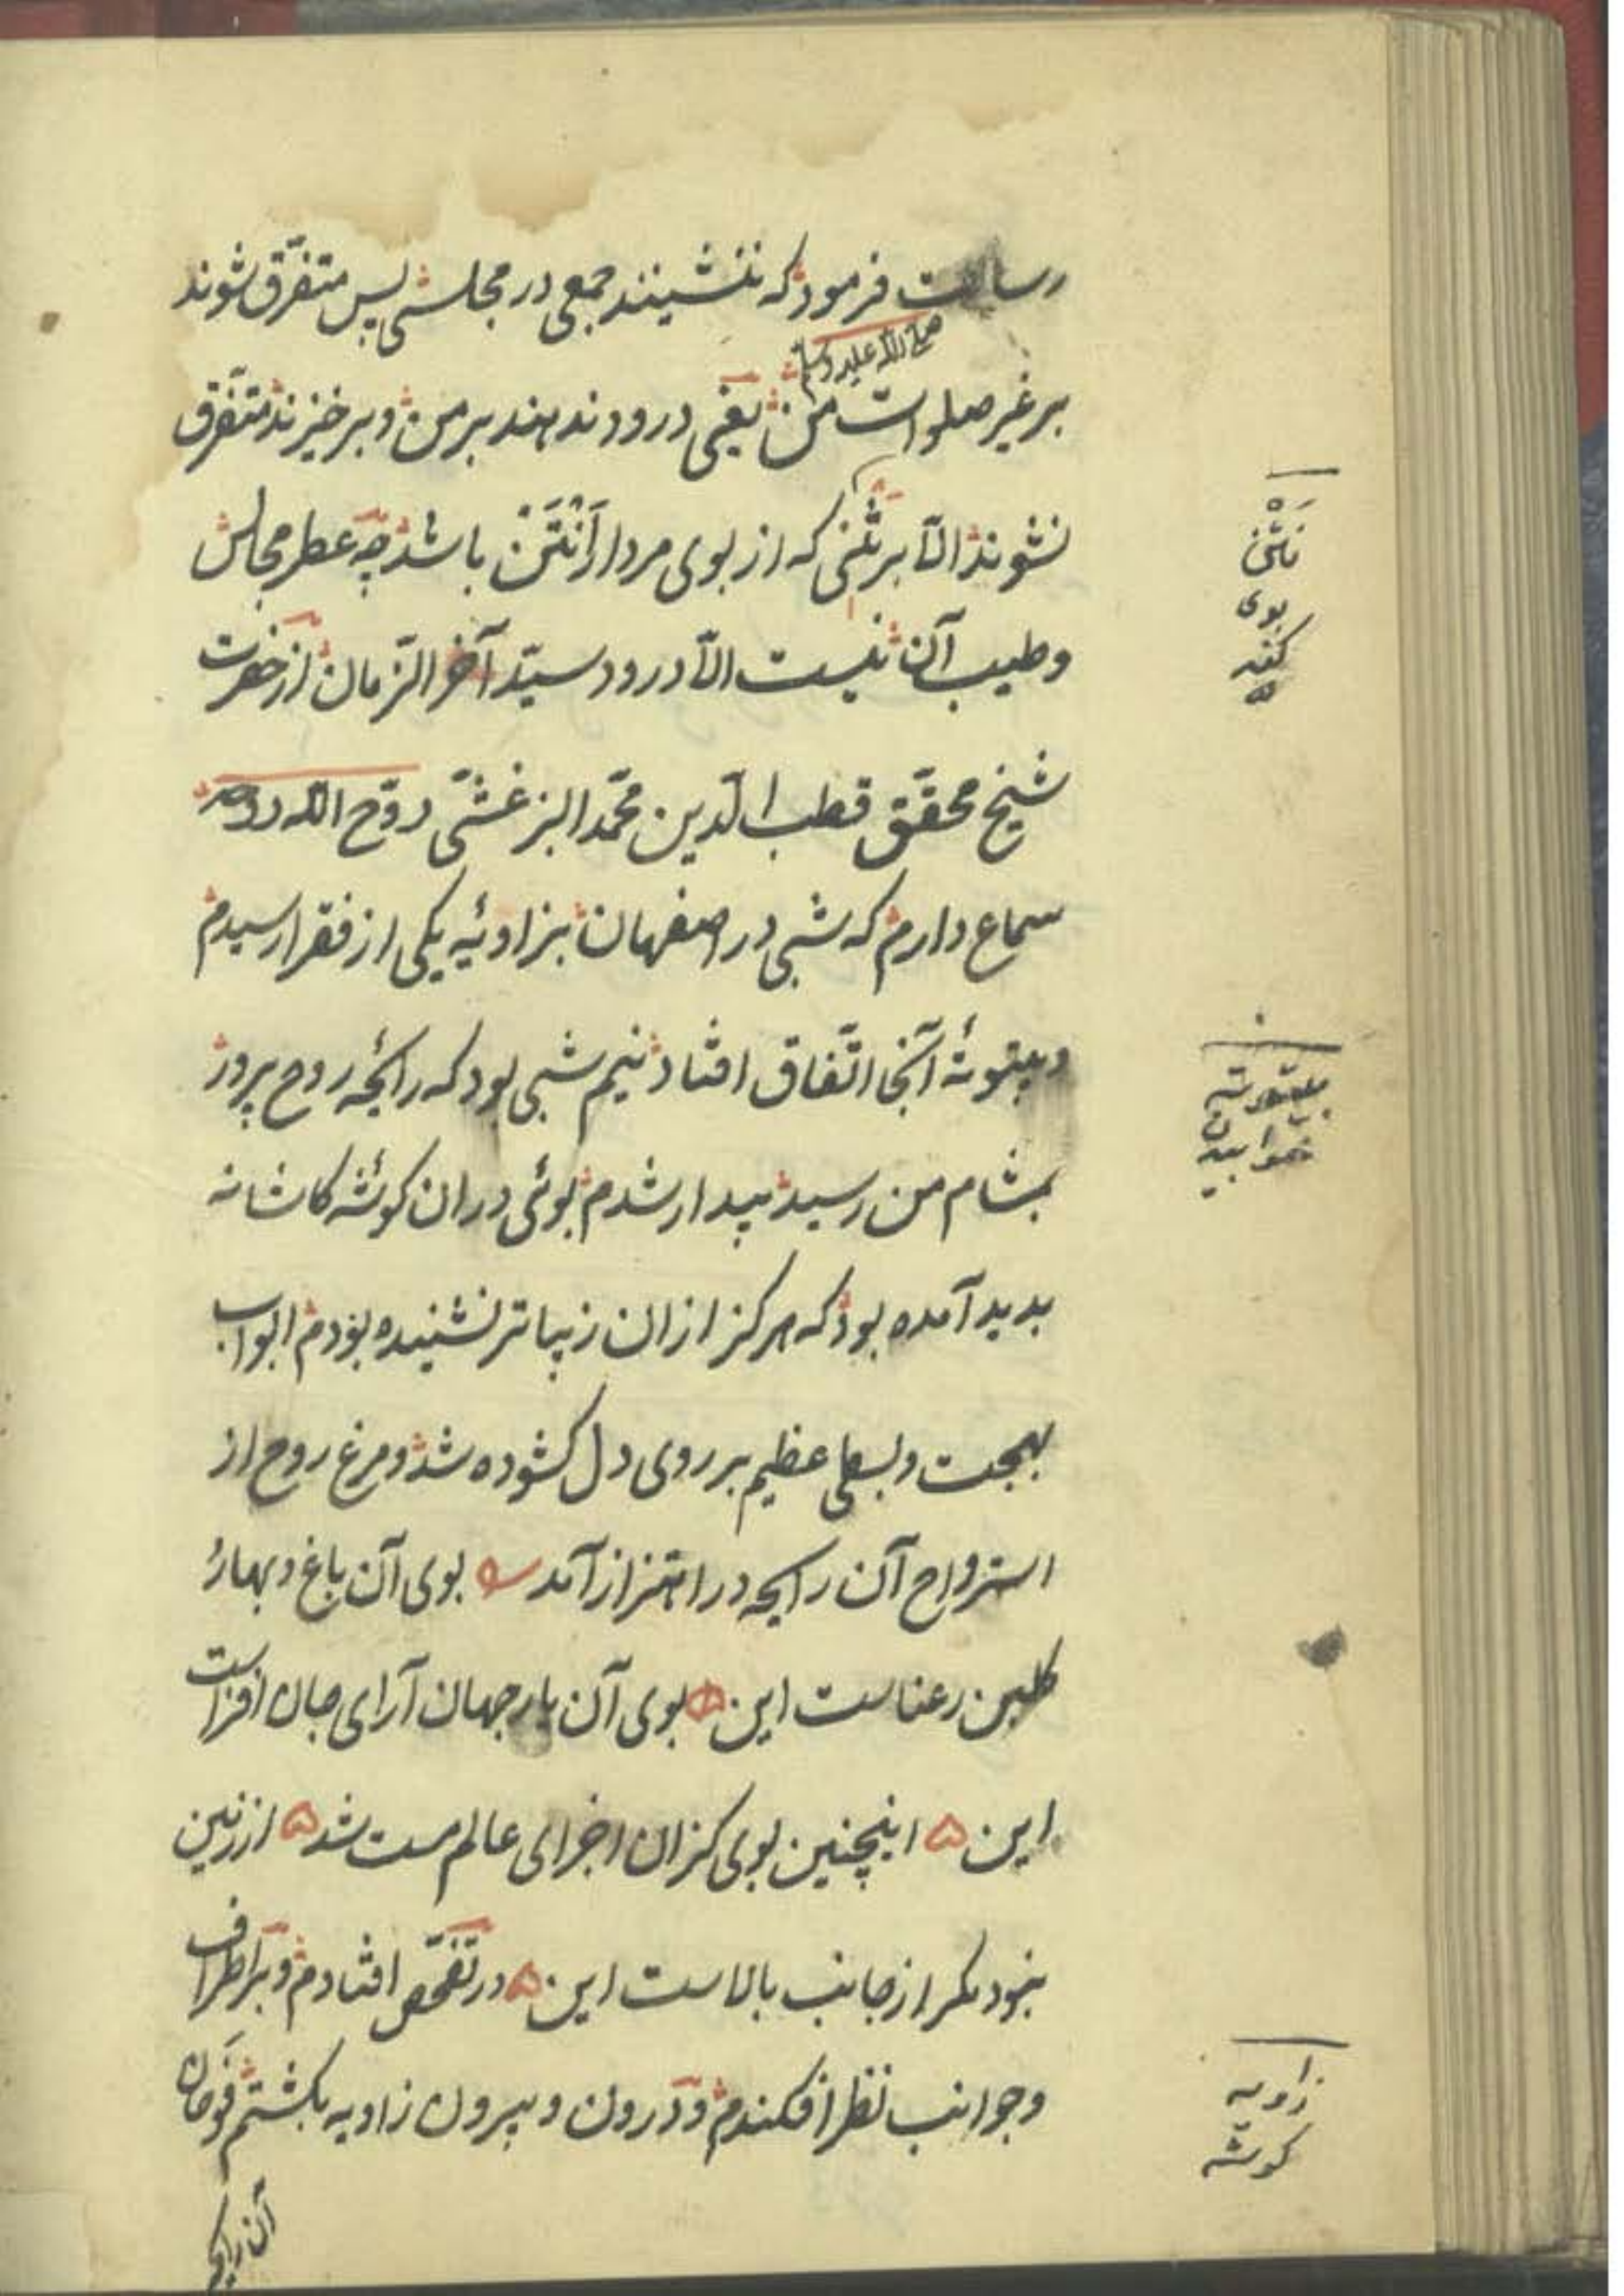 رسالت فرمود که ننشینند جمعی در مجلسی پس متفرّق شوند
صلی الله علیه وسلم
بر غیر صلوات من یعنی درود ندهند بر من و بر خیزند متفرّق
نشوند الّا بر نتنی که از بوی مردار اَنْتَنْ باشد چه عطر مجالس
و طیب آن نیست الّا درود سیّد آخر الزّمان از حضرت
شیخ محقّق قطب الدّین محمّد البزغشی روّح الله روحه
سماع دارم که شبی در اصفهان بزاویهٔ یکی از فقرا رسیدم
و بیتوتهٔ آنجا اتّفاق افتاد نیم شبی بود که رائحهٔ روح پرور
بمشام من رسید بیدار شدم بوئی در ان کوشهٔ کاشانه
بدید آمده بود که هرکز از ان زیباتر نشنیده بودم ابواب
بهجت و بسطی عظیم بر روی دل کشوده شد و مرغ روح از
استرواح آن رایحه در اهتزاز آمد بوی آن باغ و بهار
کلبن رعناست این بوی آن یار جهان آرای جان افزاست
این ه اینچنین بوی کزان اجزای عالم مست شد ه از زمین
نبود مکر از جانب بالاست این ه در تفحّص افتادم و بر اطراف
و جوانب نظر افکندم و درون و بیرون زاویه بکشتم فوحان
آن رایحه
نَتْن
بوی
کنده
بیتوته
خوابیدن
زاویه
کوشه